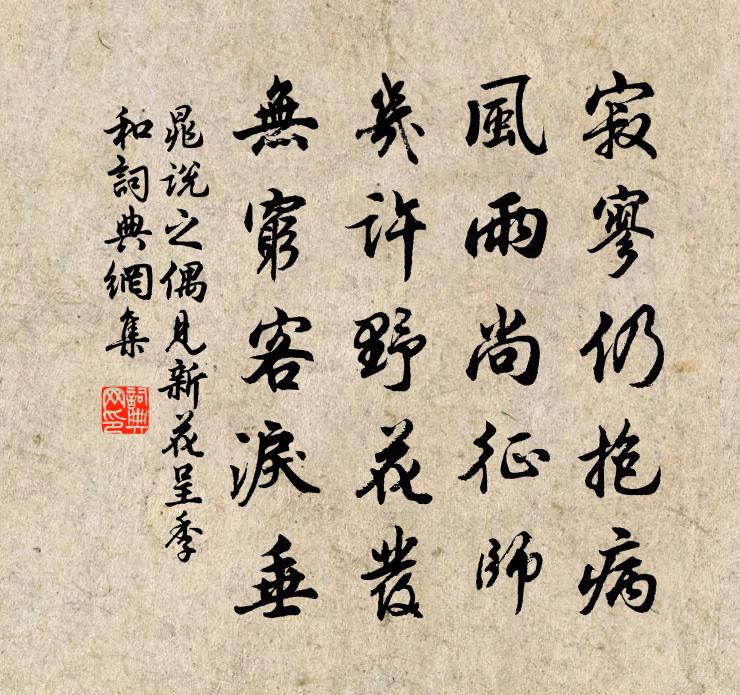 寂寥仍抱病
風雨尚征師
幾許野花發
無窮客淚垂
晁説之偶見新花呈季
和詞典網集
詞典
网印